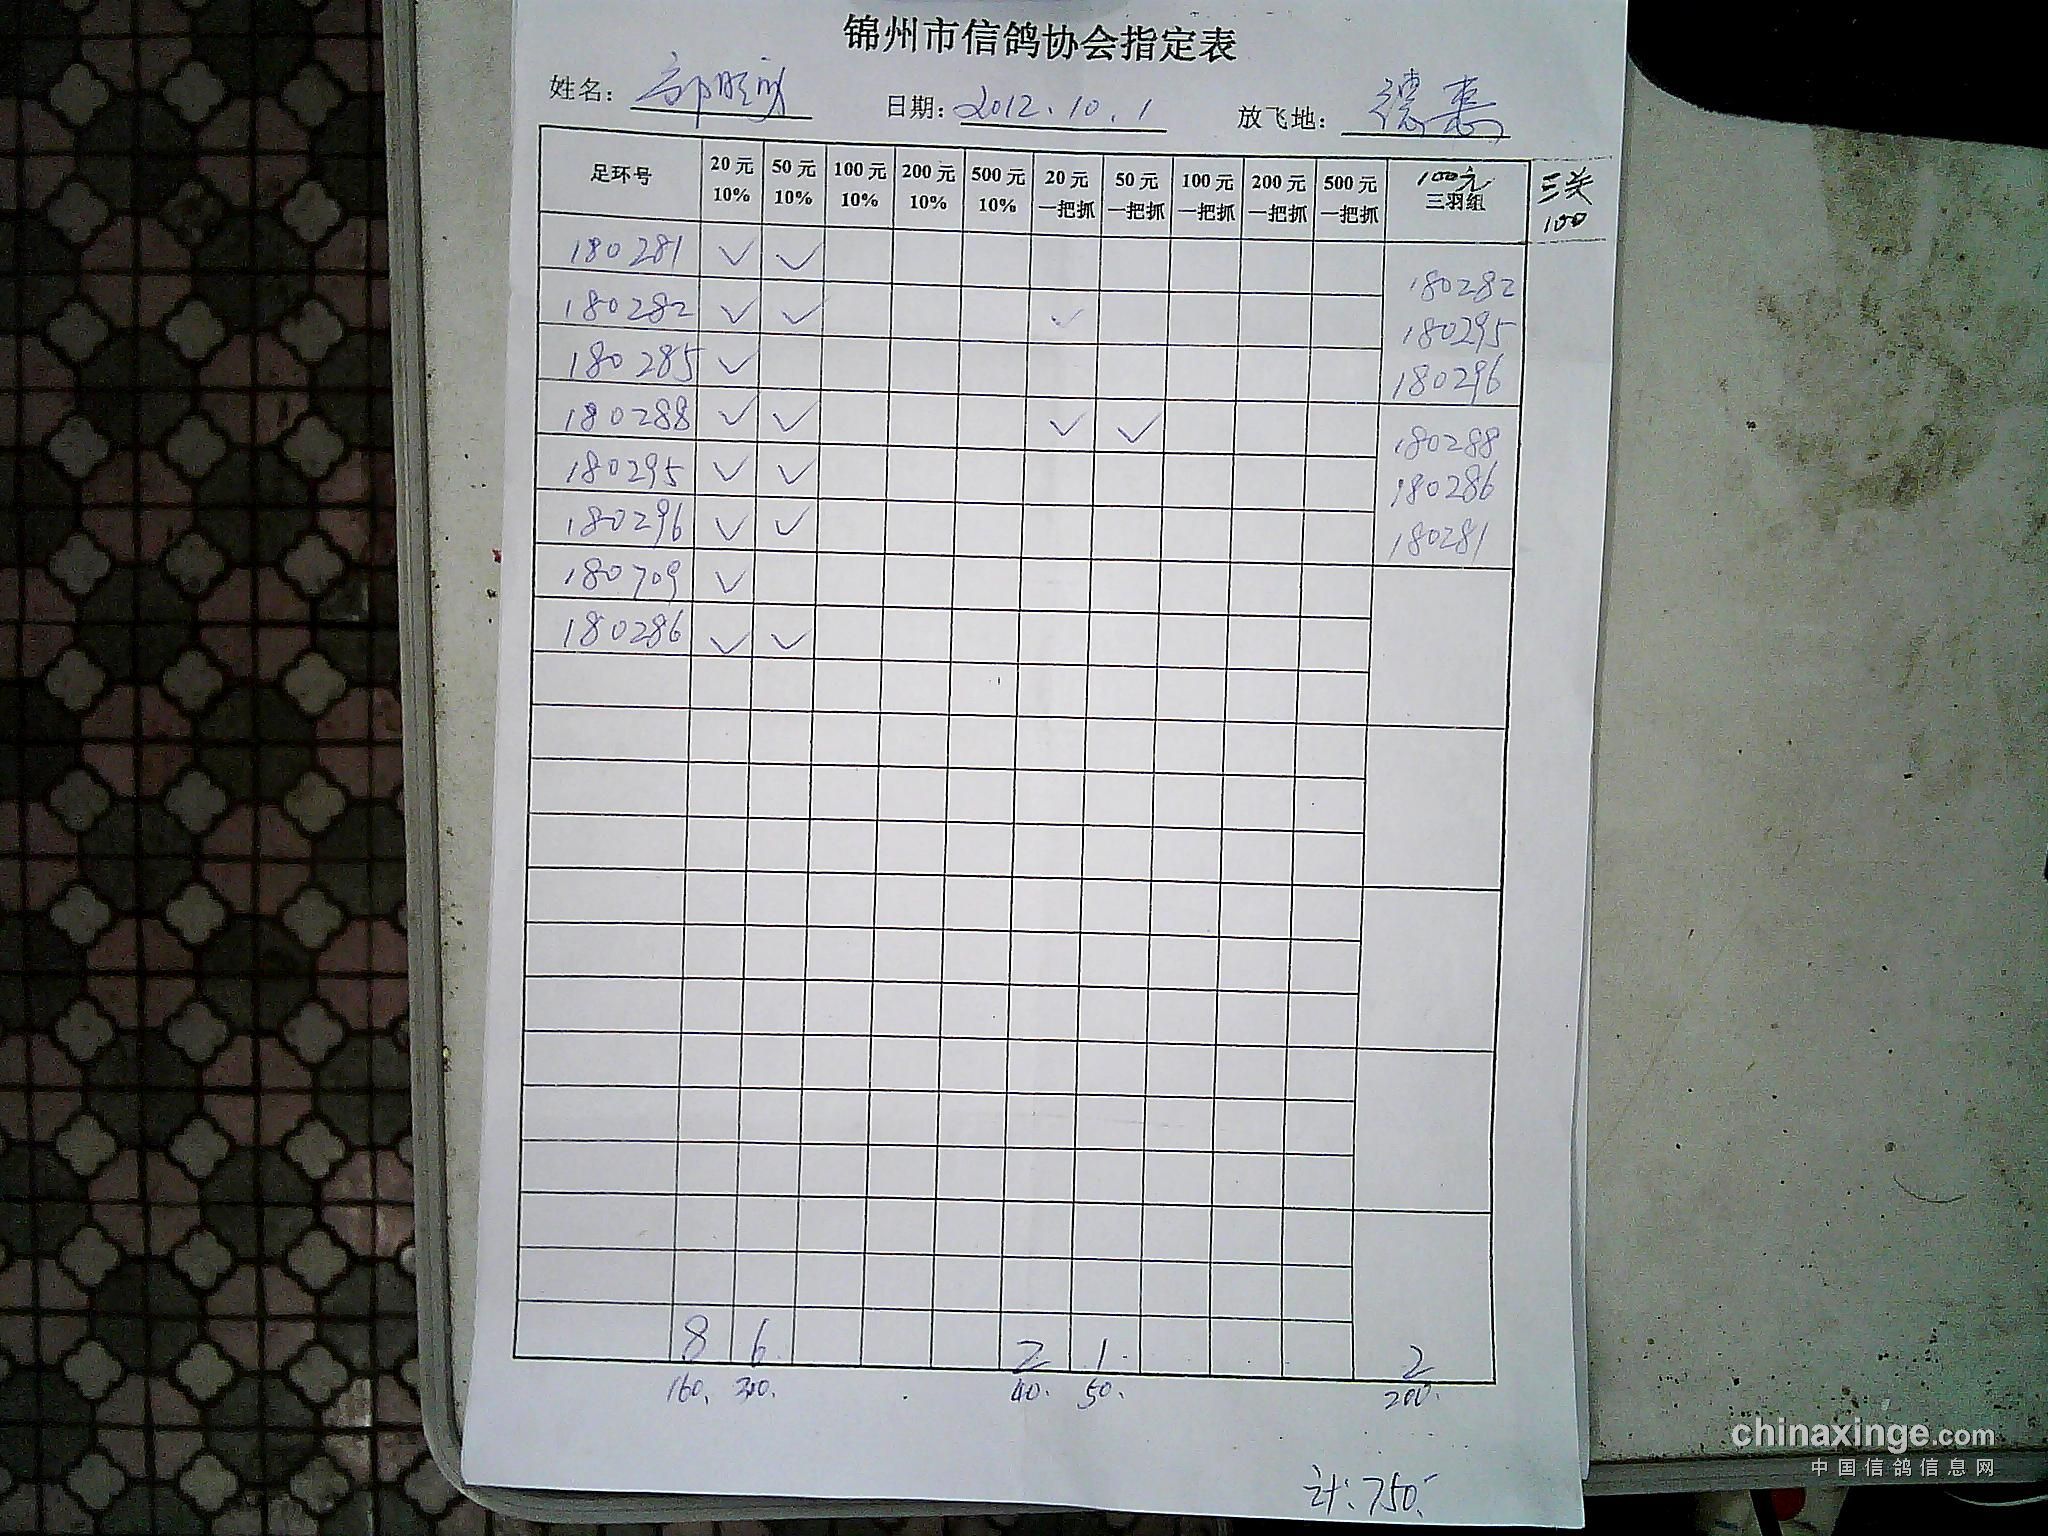 锦州市信鸽协会指定表
姓名： 日期：2012.10.1 放飞地：德惠
足环号 20元 10% 50元 10% 100元 10% 200元 10% 500元 10% 20元 一把抓 50元 一把抓 100元 一把抓 200元 一把抓 500元 一把抓 100元 三羽组 三关 100
180281 ✓ ✓
180282 ✓ ✓ ✓ 180282
180285 ✓ 180295
180296
180288 ✓ ✓ ✓ ✓ 180288
180295 ✓ ✓ 180286
180296 ✓ ✓ 180281
180709 ✓
180286 ✓ ✓
8 6 2 1 2
160. 300. 40. 50. 200.
计：750.
chinaxinge.com
中国信鸽信息网